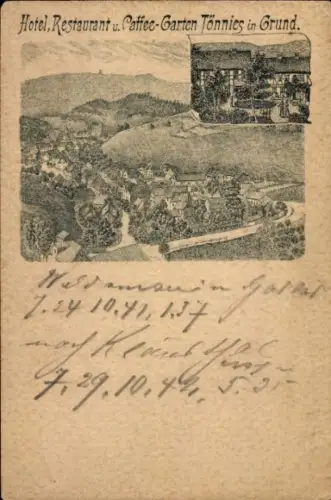 Hotel, Restaurant u. Caffee-Garten Tönnies in Grund.
Wildemann in Goslar
7.24 10.41, 1.37
nach Klausthal
7, 29, 10.44, 5.35